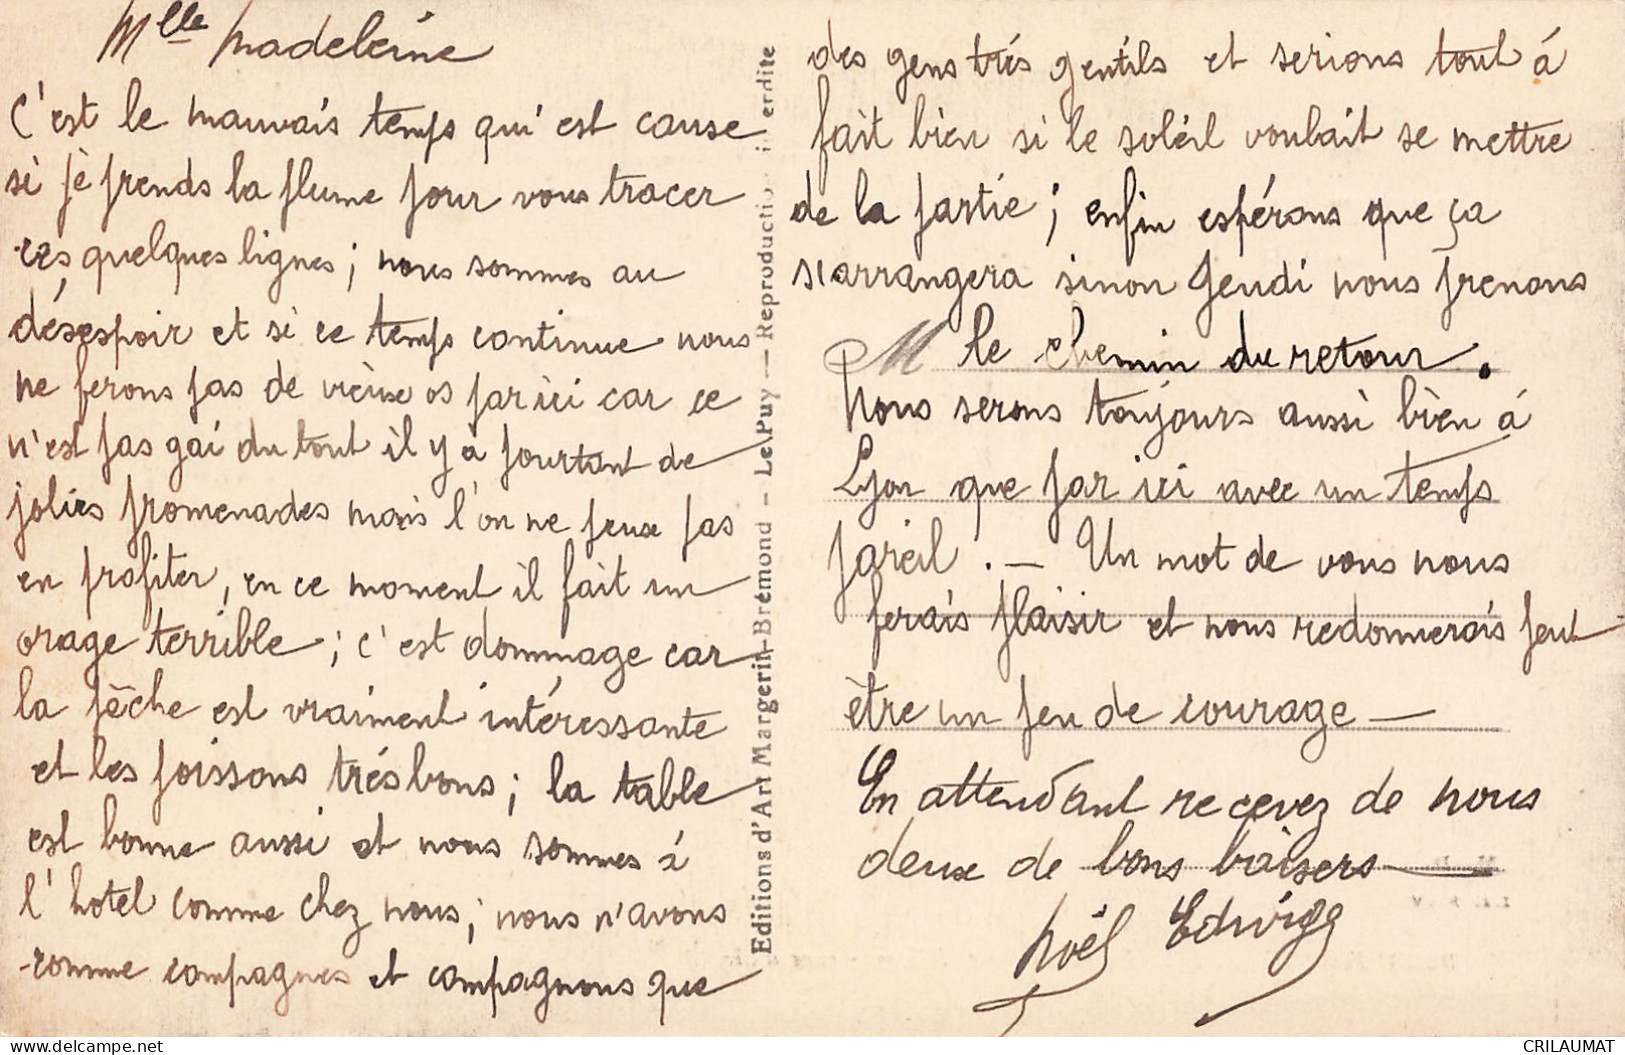 Mlle Madeleine
C'est le mauvais temps qui est cause
si je prends la plume pour vous tracer
ces quelques lignes ; nous sommes au
désespoir et si ce temps continue nous
ne ferons pas de vieux os par ici car ce
n'est pas gai du tout il y a pourtant de
jolies promenades mais l'on ne peux pas
en profiter, en ce moment il fait un
orage terrible ; c'est dommage car
la pêche est vraiment intéressante
et les poissons trés bons ; la table
est bonne aussi et nous sommes à
l'hotel comme chez nous ; nous n'avons
comme compagnes et compagnons que
Editions d'Art Margerit-Brémond - Le Puy — Reproduction interdite
des gens trés gentils et serions tout á
fait bien si le soleil voulait se mettre
de la partie ; enfin espérons que ça
s'arrangera sinon Jeudi nous prenons
M le chemin du retour.
Nous serons toujours aussi bien á
Lyon que par ici avec un temps
pareil . — Un mot de vous nous
ferais plaisir et nous redonnerais peut
être un peu de courage —
En attendant recevez de nous
deux de bons baisers
Noël Edwige
www.delcampe.net
CRILAUMAT